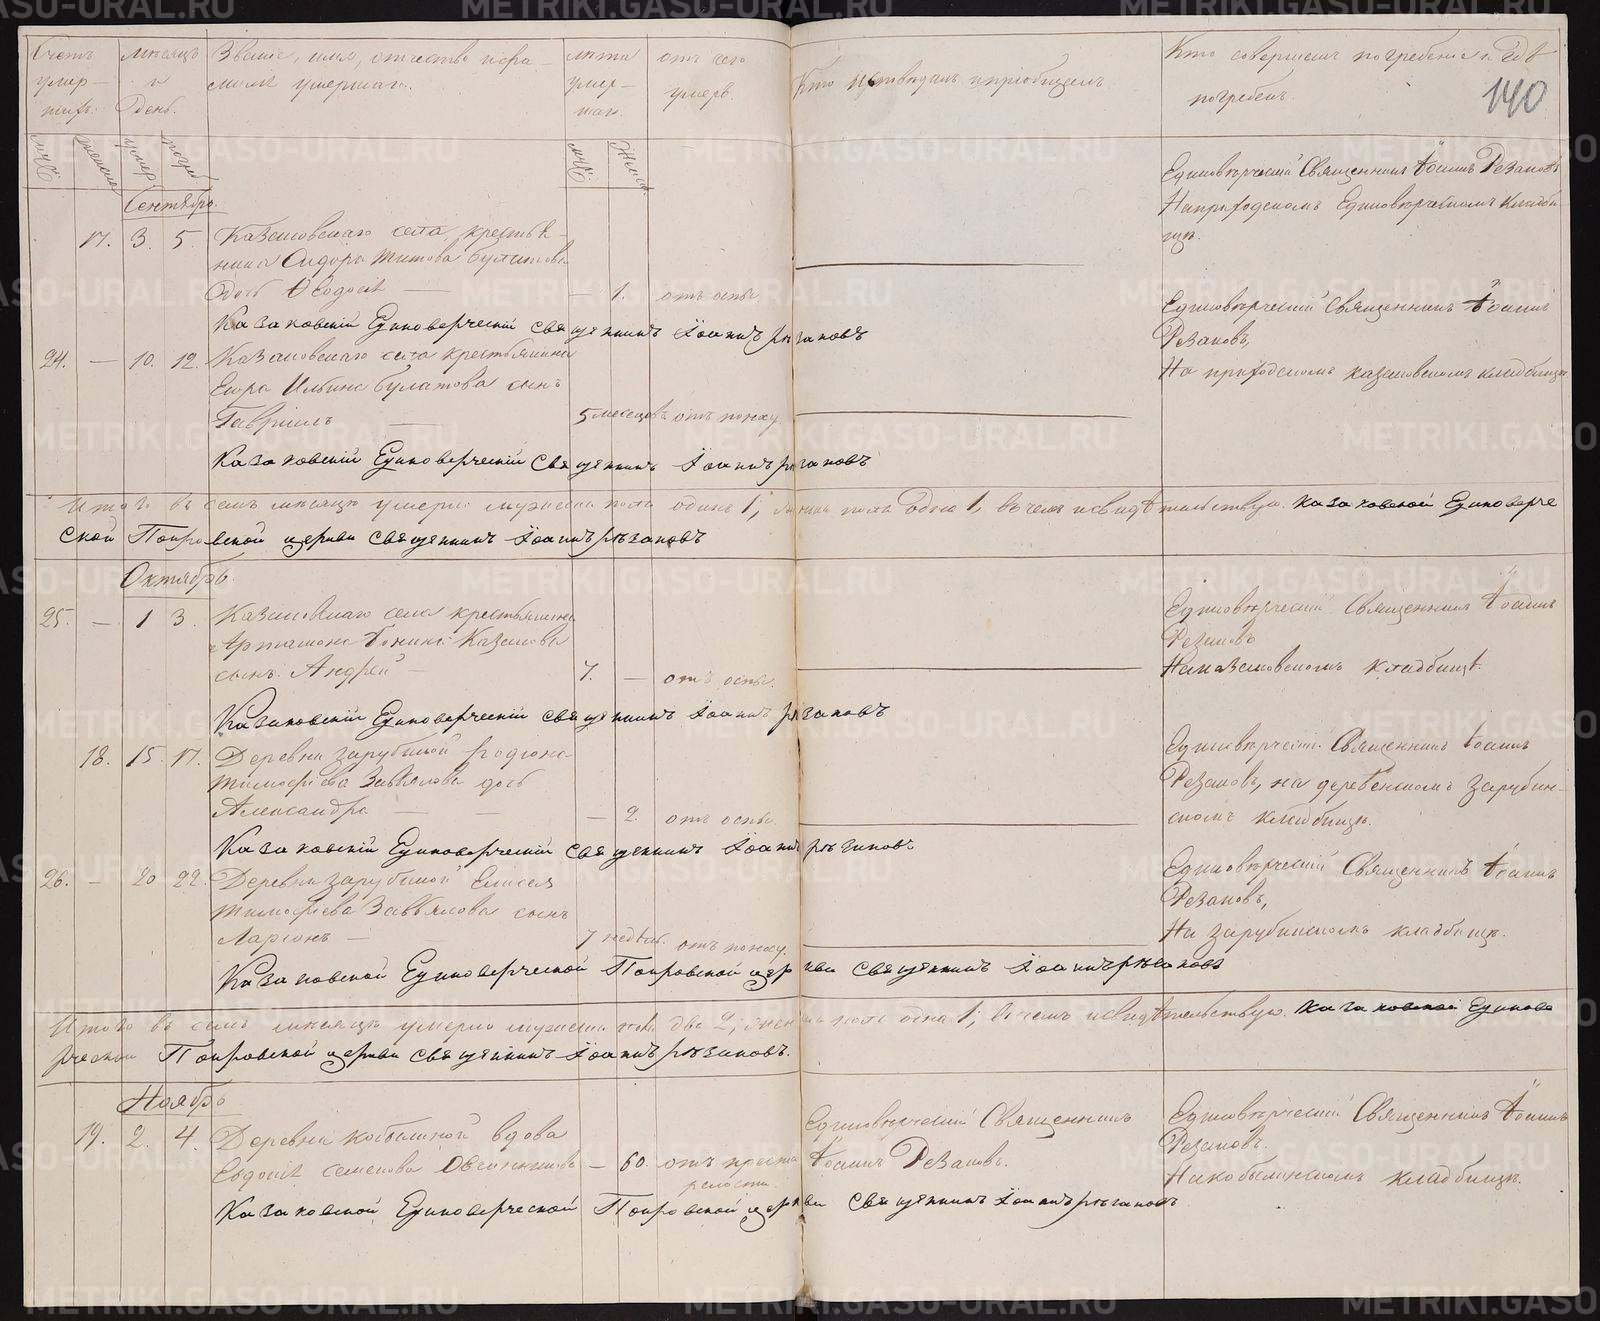 Счетъ умер- шихъ.
Мѣсяцъ и день.
Званіе, имя, отчество и фа-
милія умершаго.
лѣта умер- шаго.
отъ чего умеръ.
Кто исповѣдалъ и пріобщалъ
Кто совершалъ погребеніе и гдѣ
погребенъ.
140
муж:
женска
умер
погреб
муж:
женск
Сентябрь.
17. 3. 5. Казаковскаго села, крестья-
нина Сидора Титова Булатова
Дочь Ѳеодосія — — 1. отъ оспы.
Единовѣрческій Священникъ Іоаннъ Резановъ
На приходскомъ Единовѣрческомъ кладби-
щѣ.
Казаковскій Единоверческій священникъ Іоаннъ рѣзановъ
24. — 10. 12. Казаковскаго села крестьянина
Егора Ильина Булатова сынъ
Гавріилъ — 5 месецовъ отъ поносу
Единовѣрческій Священникъ Іоаннъ
Резановъ,
На приходскомъ казаковскомъ кладбищѣ
Казаковскій Единоверческій священникъ Іоаннъ рѣзановъ
Итого въ семъ мѣсяцѣ умерло мужеска пола одинъ 1, женска пола одна 1, въ чемъ и свидѣтельствую. Казаковской Единоверче
ской Покровской церкви священникъ Іоаннъ рѣзановъ
Октябрь.
25. — 1 3. Казаковскаго села крестьянина
Артамона Іонина Казакова
сынъ Андрей — 7. — отъ оспы.
Единовѣрческій Священникъ Іоаннъ
Резановъ
На казаковскомъ кладбищѣ.
Казаковскій Единоверческій священникъ Іоаннъ рѣзановъ
18. 15. 17. Деревни Зарубиной Родіона
Тимофѣева Завьялова дочь
Александра — — — 2. отъ оспы.
Единовѣрческій Священникъ Іоаннъ
Резановъ, на деревенскомъ Зарубин-
скомъ кладбищѣ.
Казаковскій Единоверческій священникъ Іоаннъ рѣзановъ
26. — 20 22. Деревни Зарубиной Елисея
Тимофѣева Завьялова сынъ
Ларіонъ — 7 недѣль. отъ поносу.
Единовѣрческій Священникъ Іоаннъ
Резановъ,
На Зарубинскомъ кладбищѣ.
Казаковской Единоверческой Покровской церкви священникъ Іоаннъ рѣзановъ
Итого въ семъ мѣсяцѣ умерло мужеска пола два 2, женска пола одна 1, въ чемъ и свидѣтельствую. Казаковской Единове
рческой Покровской церкви священникъ Іоаннъ рѣзановъ.
Ноябрь
19. 2. 4. Деревни Кобылиной вдова
Евдокія Семенова Овсянникова — 60. отъ преста
релости.
Единовѣрческій Священникъ
Іоаннъ Резановъ.
Единовѣрческій Священникъ Іоаннъ
Резановъ.
На кобылинскомъ кладбищѣ.
Казаковской Единоверческой Покровской церкви священникъ Іоаннъ рѣзановъ
METRIKI.GASO-URAL.RU